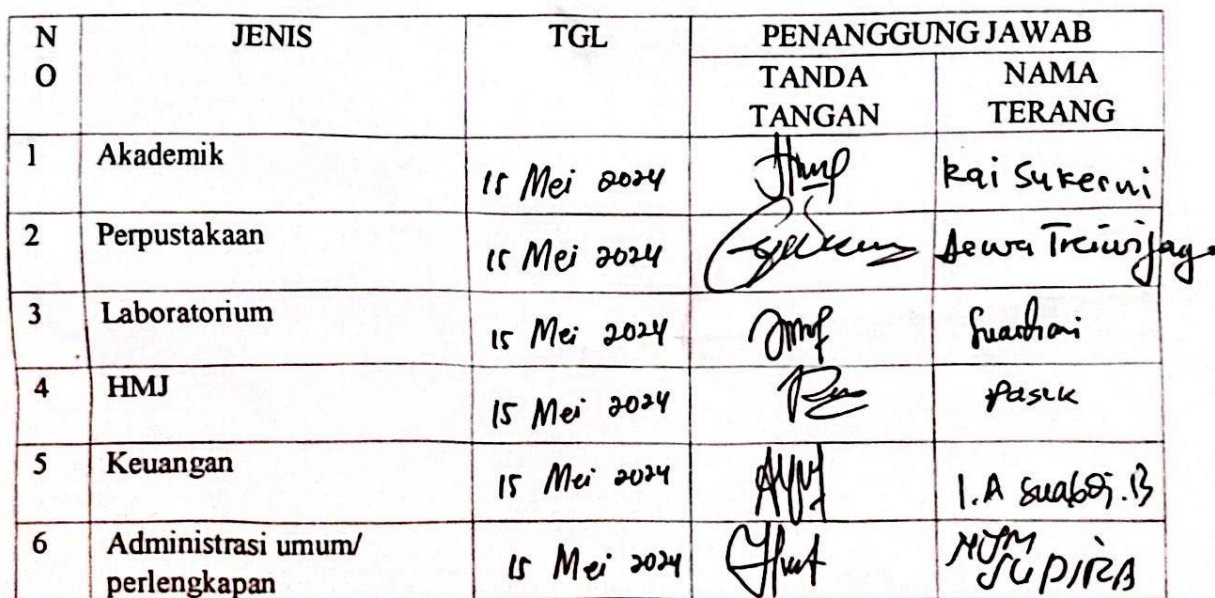 NO JENIS TGL PENANGGUNG JAWAB
TANDA TANGAN NAMA TERANG
1 Akademik 15 Mei 2024 Rai Sukerni
2 Perpustakaan 15 Mei 2024 Dewa Treiwijaya
3 Laboratorium 15 Mei 2024 Suardani
4 HMJ 15 Mei 2024 Pasek
5 Keuangan 15 Mei 2024 I.A
6 Administrasi umum/ 15 Mei 2024
perlengkapan SUPIRA